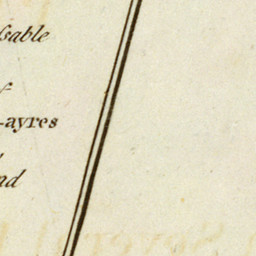 ſsable
f
-ayres
nd